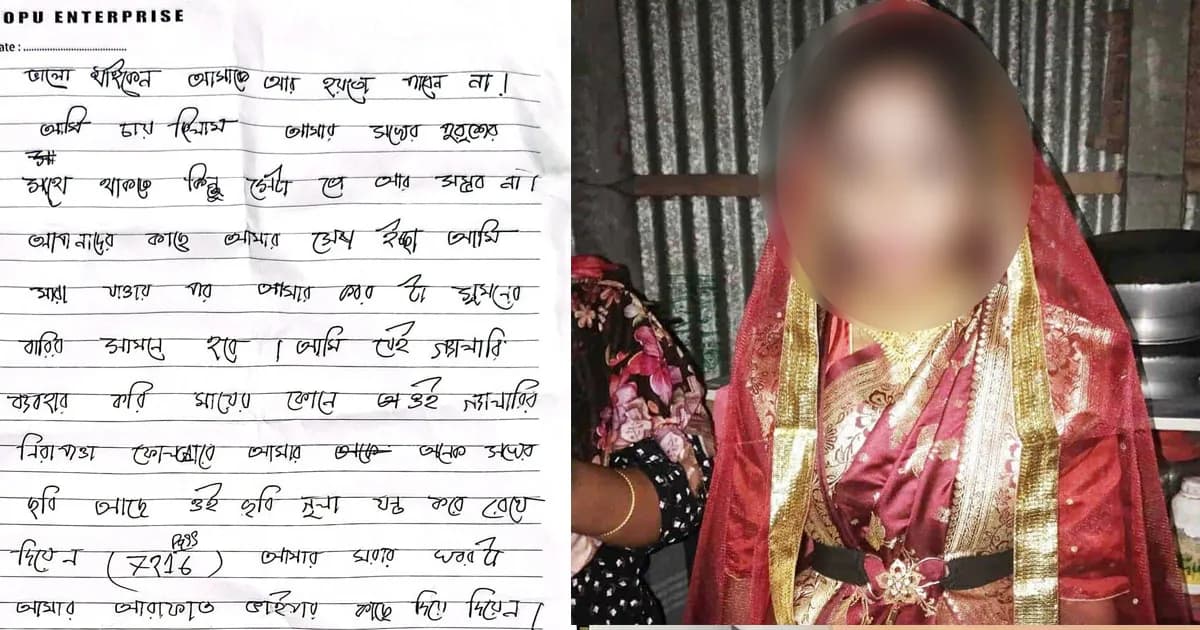 OPU ENTERPRISE
ate :
ভালো থাইকেন আমাকে আর হয়তো পাবেন না।
আমি চায় ছিলাম আমার সখের পুরুশের
সাথে থাকতে কিন্তু সেটা তো আর সম্ভব না।
আপনাদের কাছে আমার শেষ ইচ্ছা আমি
মারা যাওয়ার পর আমার কবর টা সুমনের
বারির সামনে হবে। আমি যেই গ্যালারি
ব্যবহার করি মায়ের ফোনে অই গ্যালারির
ফোনে আমার অনেক সখের
ছবি আছে ওই ছবি গুলা যত্ন করে রেখে
দিয়েন (7216) আমার মরার খবর টা
আমার আরাফাত ভাইয়ার কাছে দিয়ে দিয়েন।